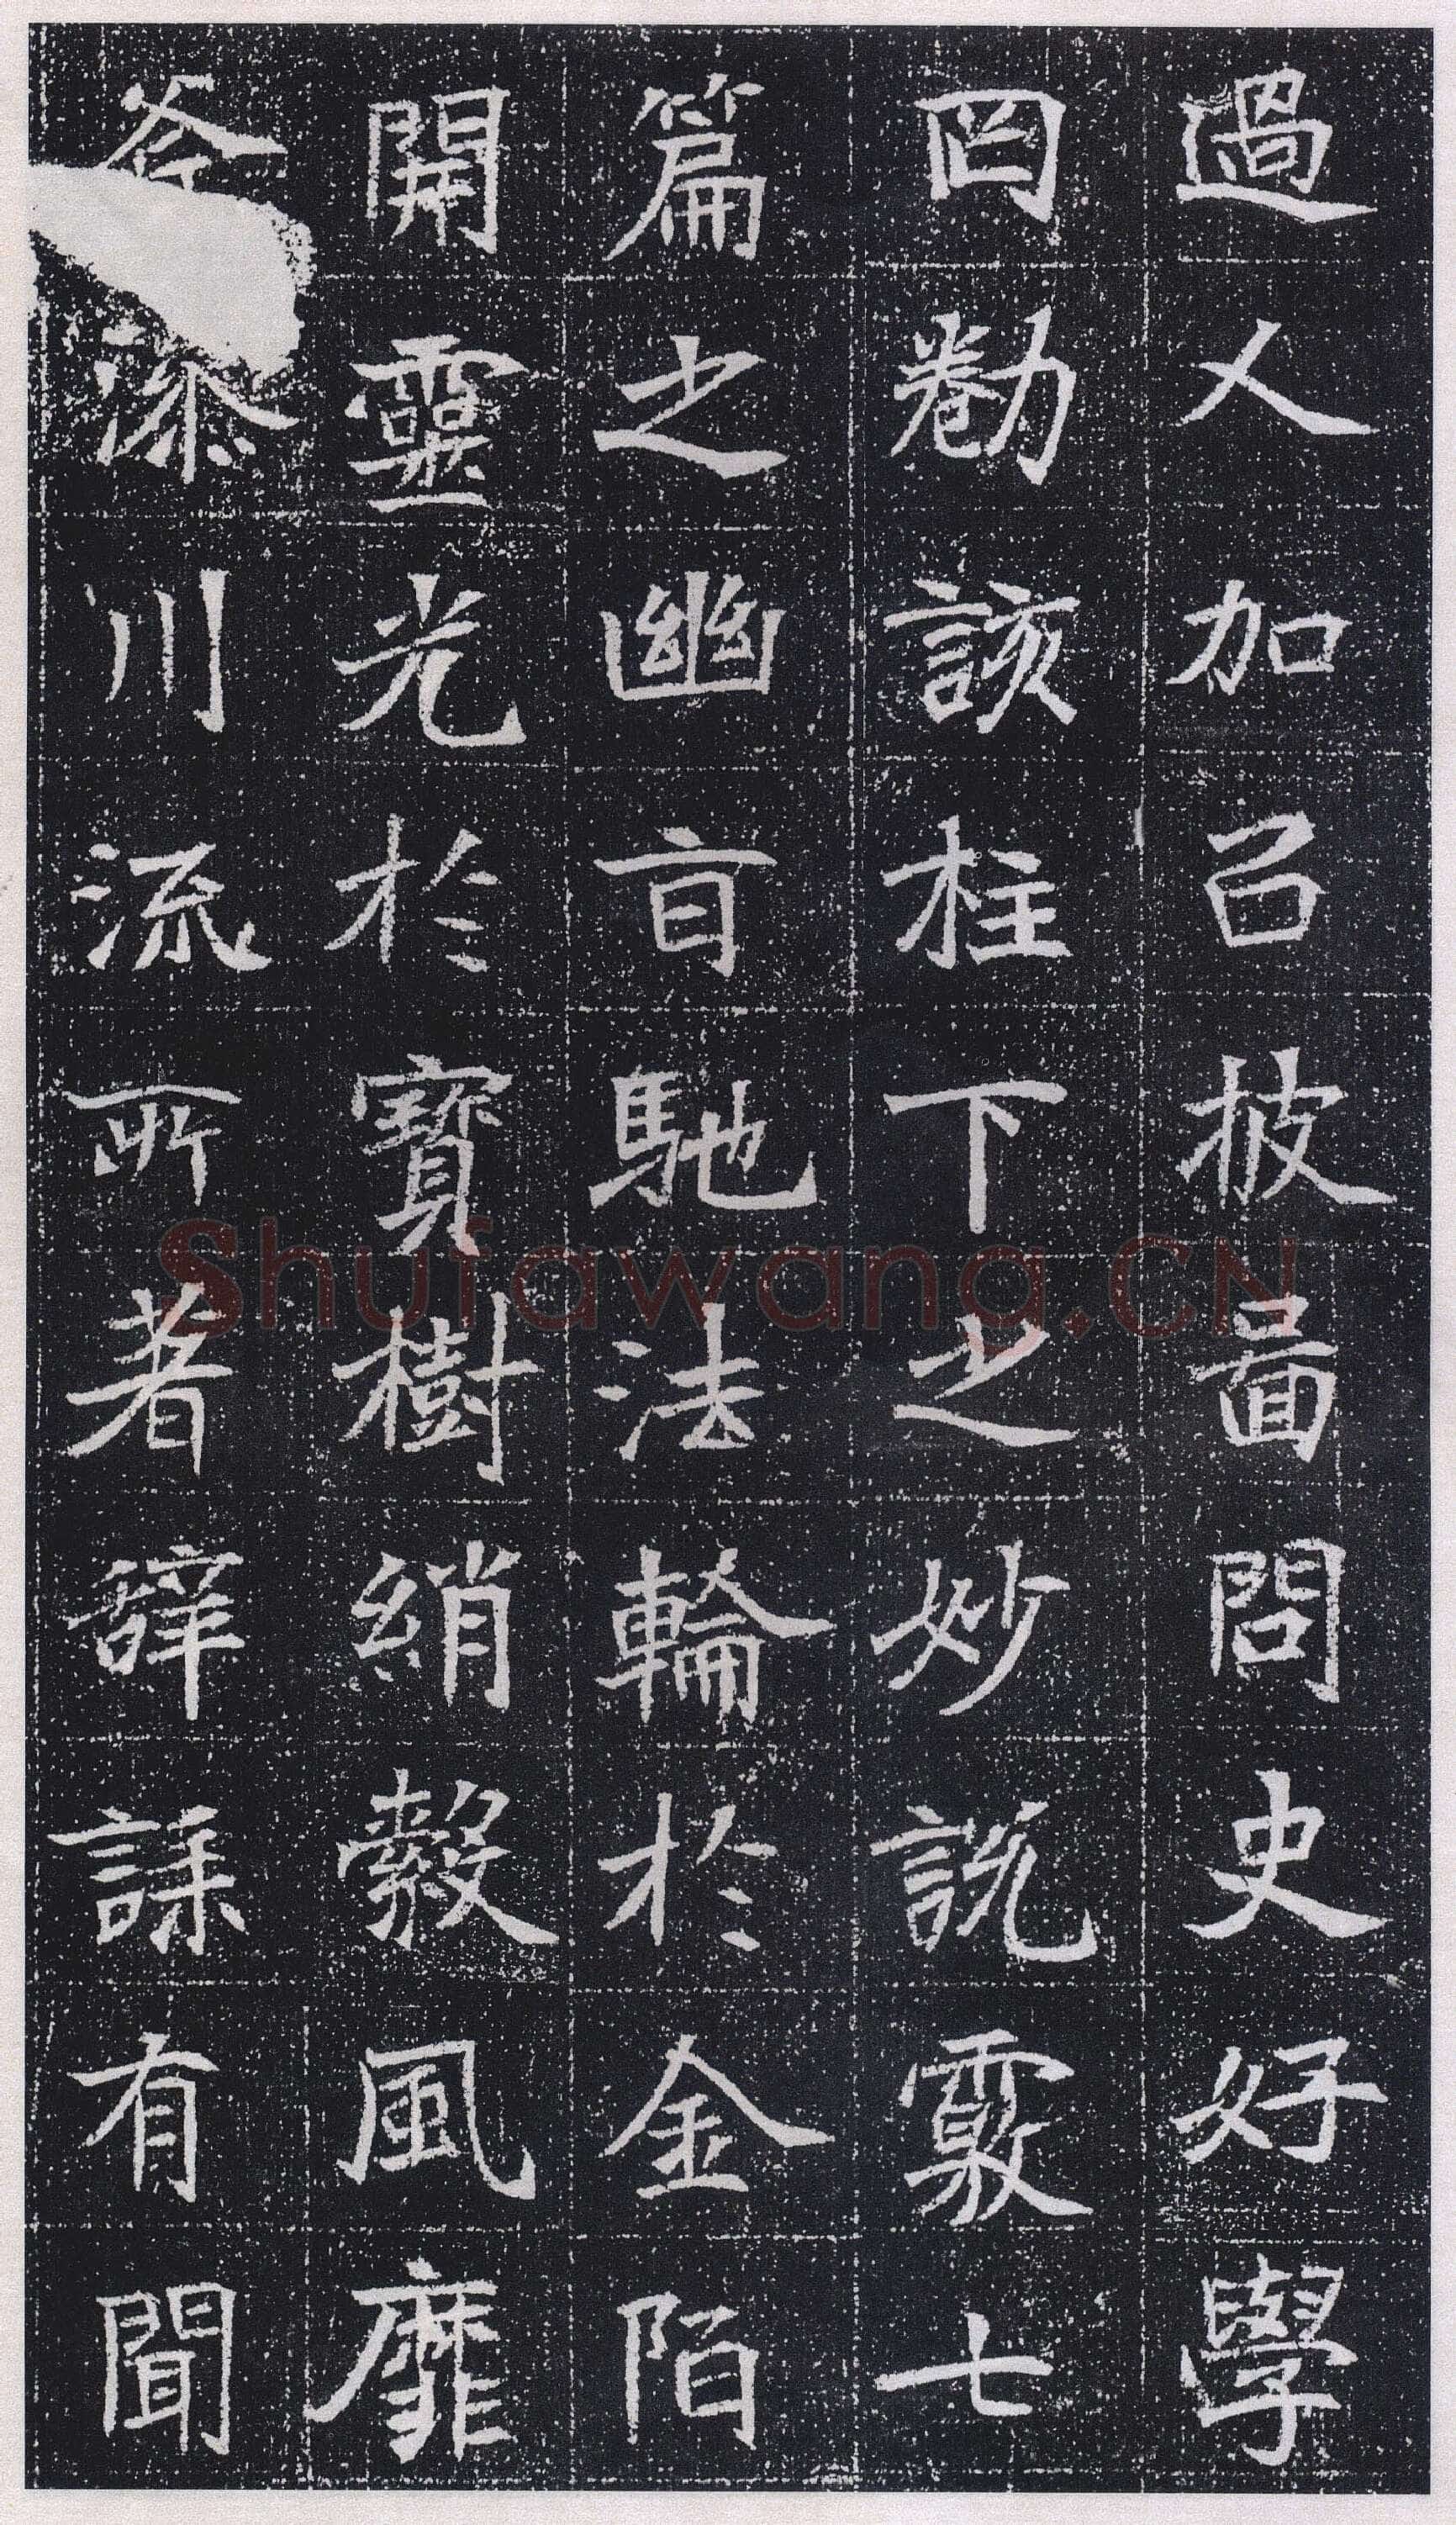 過人加㠯披啚問史好學
罔勌該柱下之妙説覈七
篇之幽旨馳法輪於金陌
開靈光於寶樹綃縠風靡
川流所著辭誄有聞
Shufawang.CN